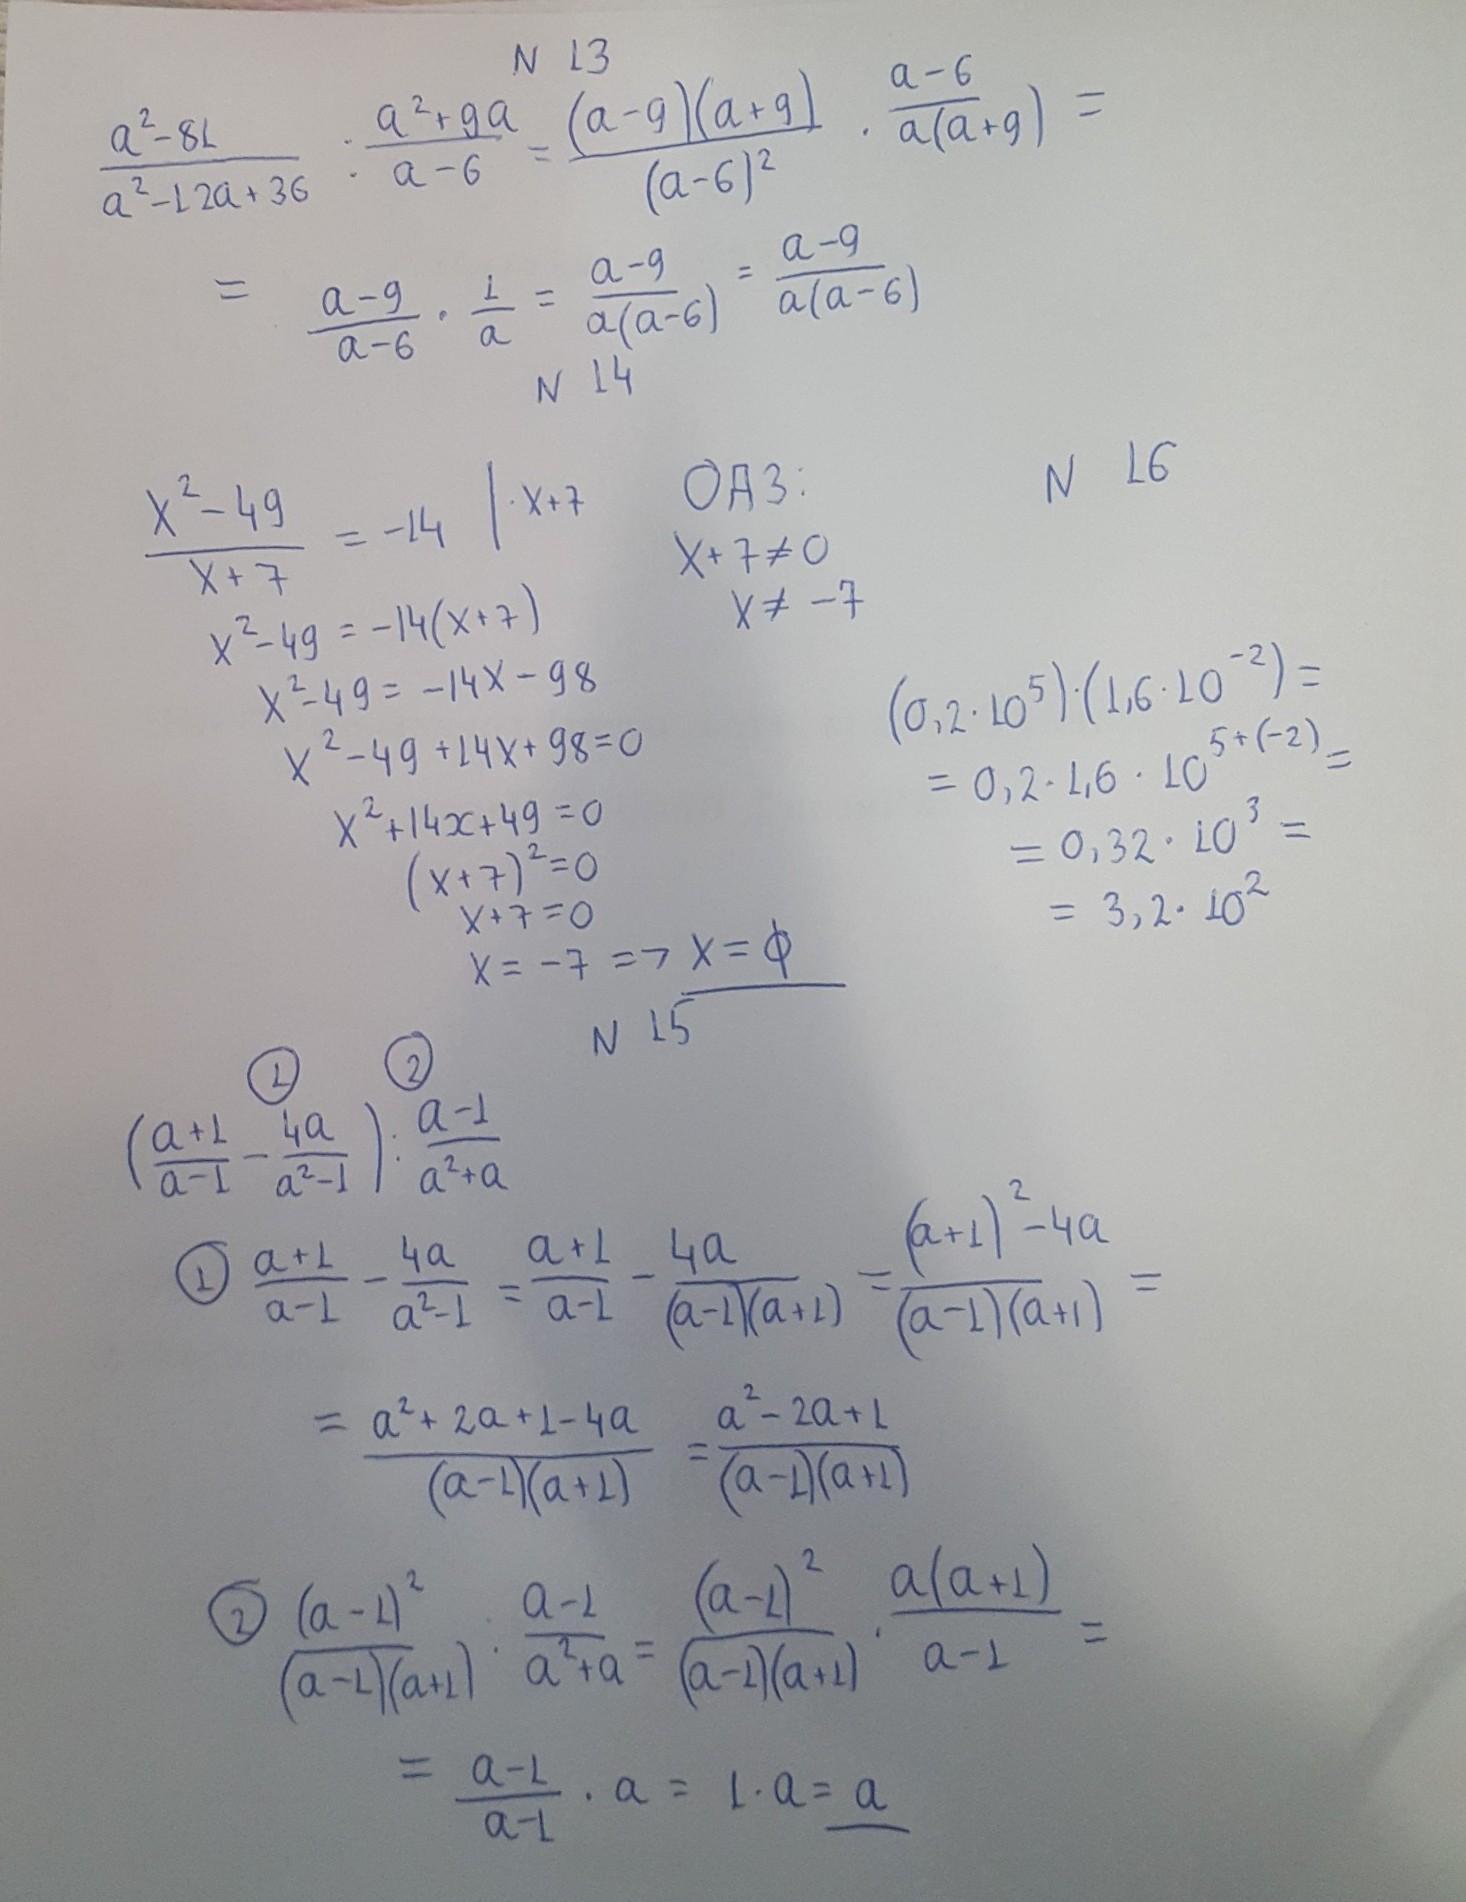 N 13
(a²-81)/(a²-12a+36) : (a²+9a)/(a-6) = ((a-9)(a+9))/(a-6)² · (a-6)/(a(a+9)) =
= (a-9)/(a-6) · 1/a = (a-9)/(a(a-6)) = (a-9)/(a(a-6))
N 14
(x²-49)/(x+7) = -14 | · x+7
x²-49 = -14(x+7)
x²-49 = -14x-98
x²-49+14x+98=0
x²+14x+49=0
(x+7)²=0
x+7=0
x = -7 => x = ϕ
ОДЗ:
x+7≠0
x≠ -7
N 16
(0,2·10⁵)·(1,6·10⁻²) =
= 0,2·1,6·10⁵⁺⁽⁻²⁾ =
= 0,32·10³ =
= 3,2·10²
N 15
① ②
((a+1)/(a-1) - 4a/(a²-1)) : (a-1)/(a²+a)
① (a+1)/(a-1) - 4a/(a²-1) = (a+1)/(a-1) - 4a/((a-1)(a+1)) = ((a+1)²-4a)/((a-1)(a+1)) =
= (a²+2a+1-4a)/((a-1)(a+1)) = (a²-2a+1)/((a-1)(a+1))
② (a-1)²/((a-1)(a+1)) : (a-1)/(a²+a) = (a-1)²/((a-1)(a+1)) · (a(a+1))/(a-1) =
= (a-1)/(a-1) · a = 1·a = a